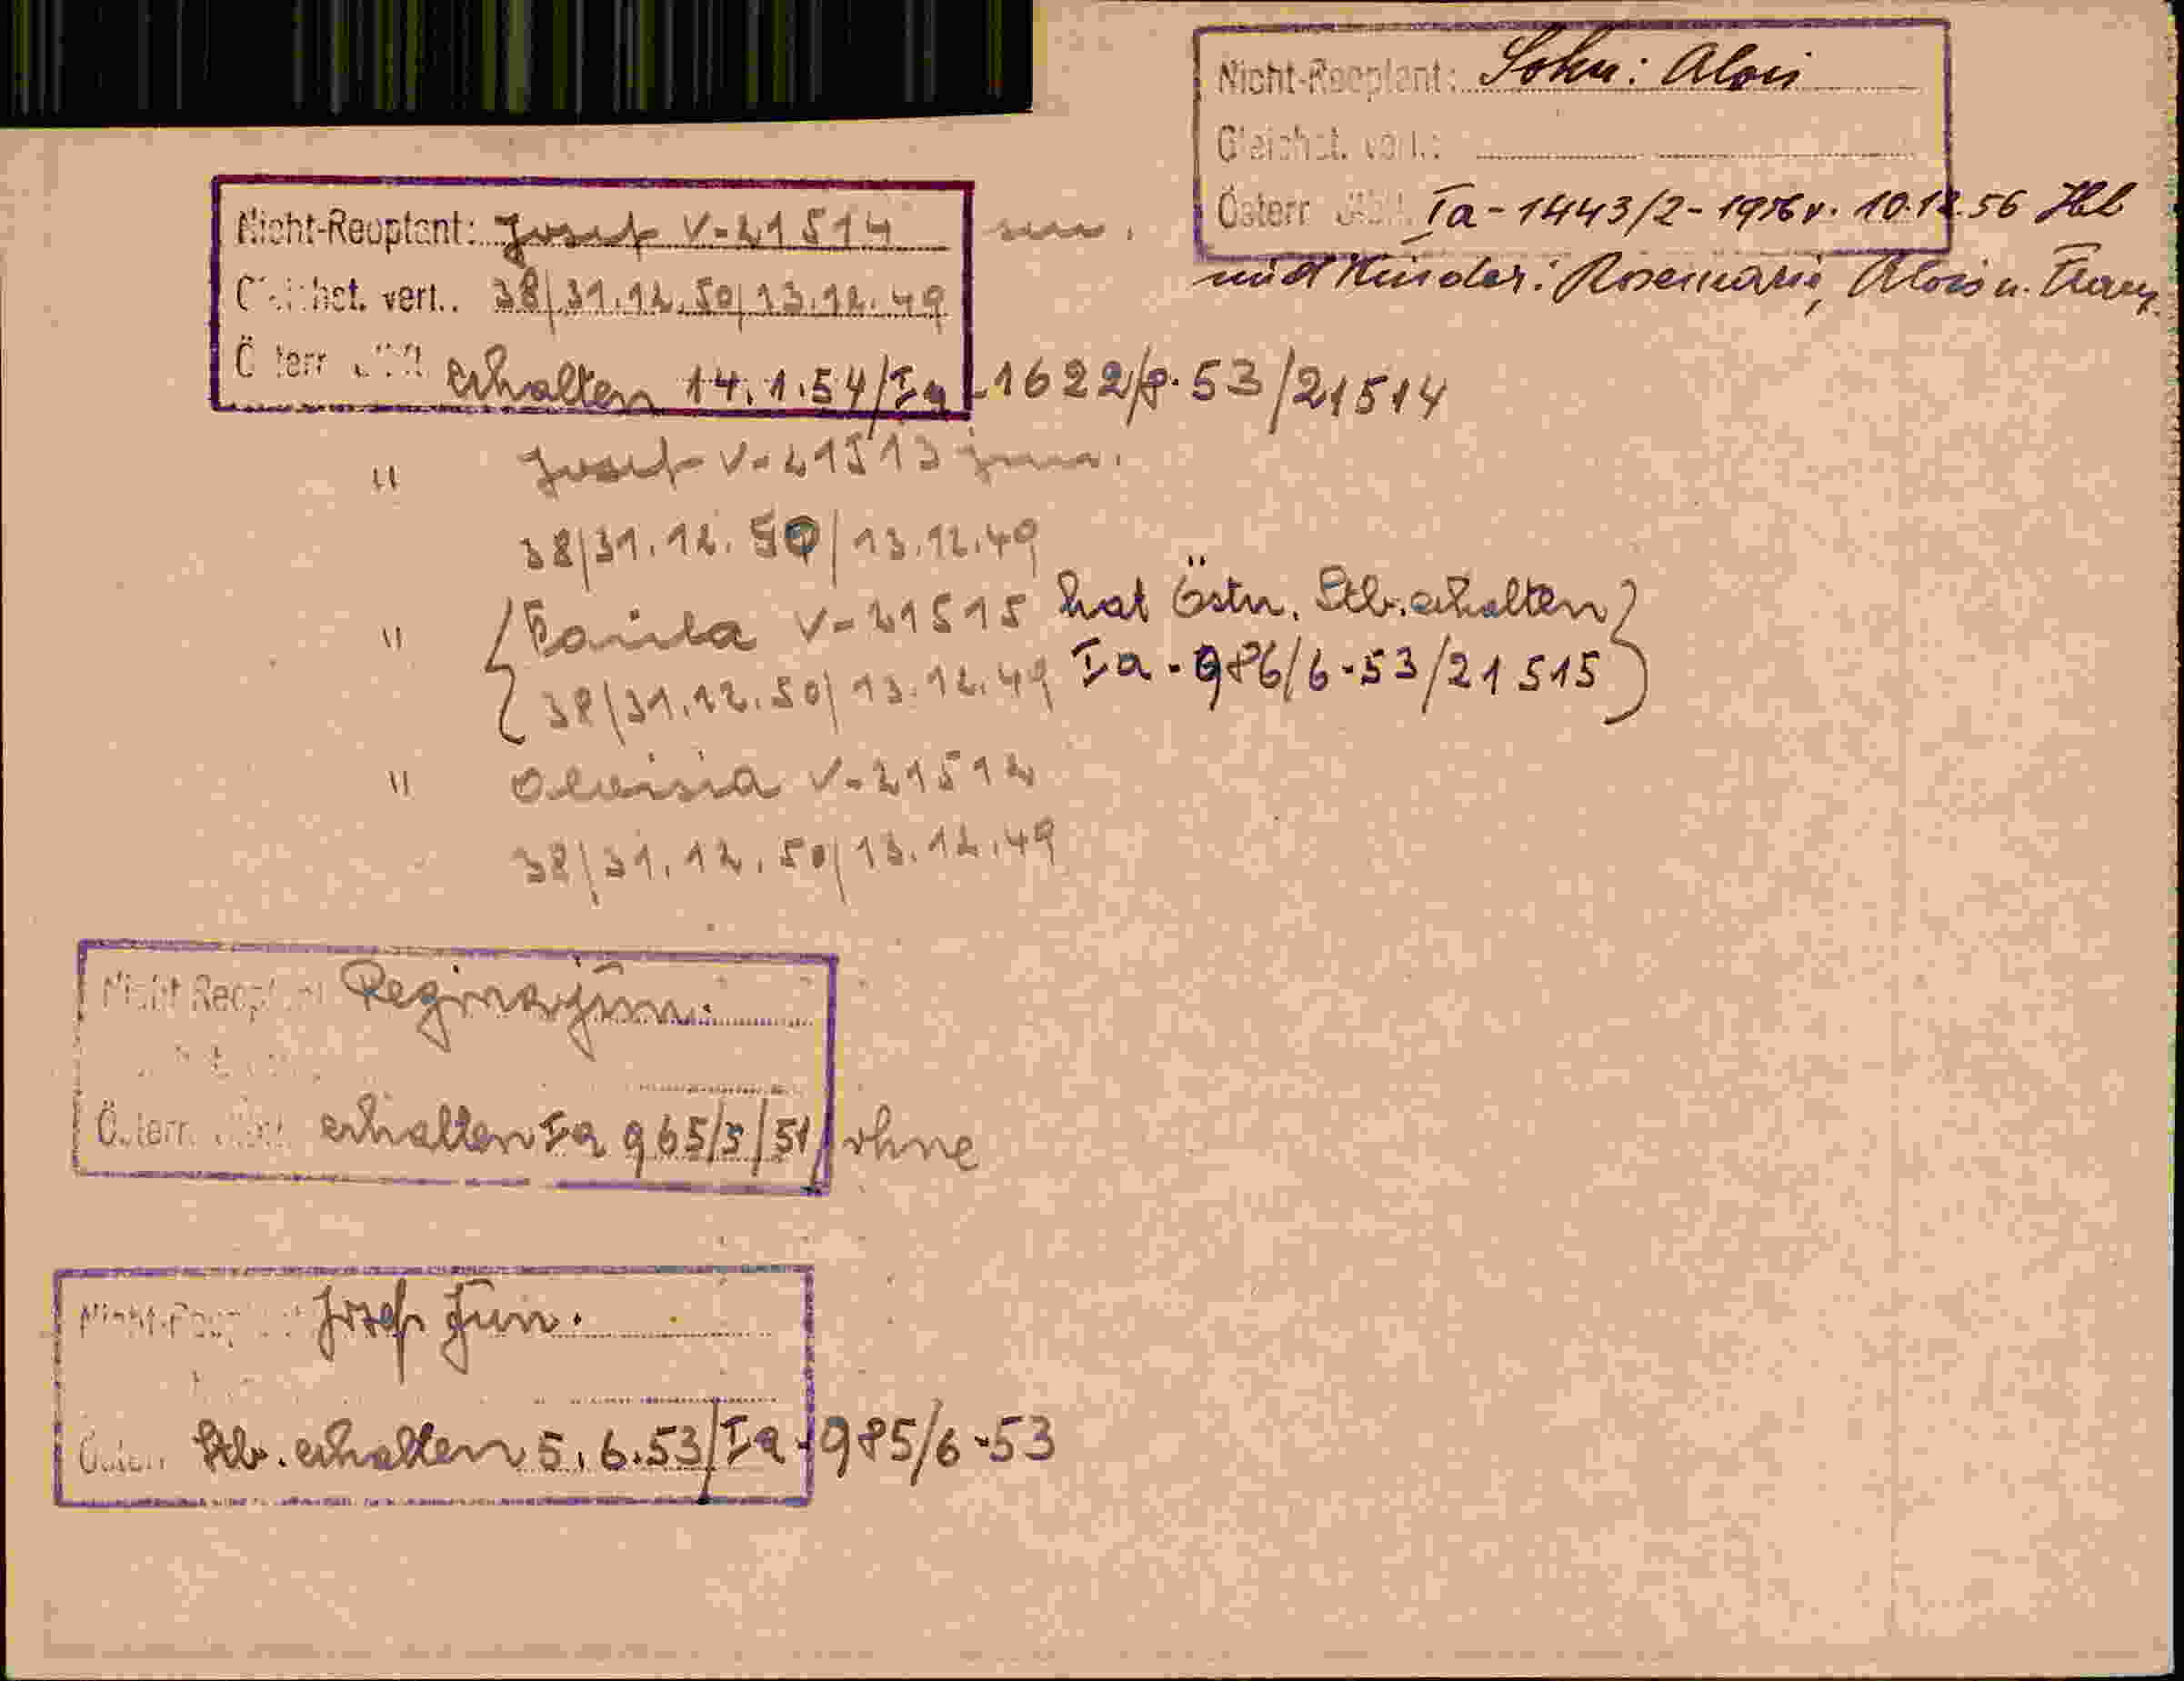 Nicht-Reoptant: Sohn: Alois
Gleichst. verl.:
Österr. Ia-1443/2-1956 v. 10.12.56 Hbl
und Kinder: Rosemarie, Alois u. Franz.
Nicht-Reoptant: Josef V-21514 sen.
Gleichst. verl.: 38/31.12.50/13.12.49
Österr. erhalten 14.1.54/Ia-1622/8-53/21514
" Josef V-21513 jun.
38/31.12.50/13.12.49
" { Paula V-21515 hat Östr. Stb. erhalten }
38/31.12.50/13.12.49 Ia-986/6-53/21515
" Aloisia V-21512
38/31.12.50/13.12.49
Nicht Reoptant Regina jun.
Österr. erhalten Ia 965/5/51/ ohne
Nicht-Reoptant Josef Jun.
Österr. Stb. erhalten 5.6.53/Ia-985/6-53